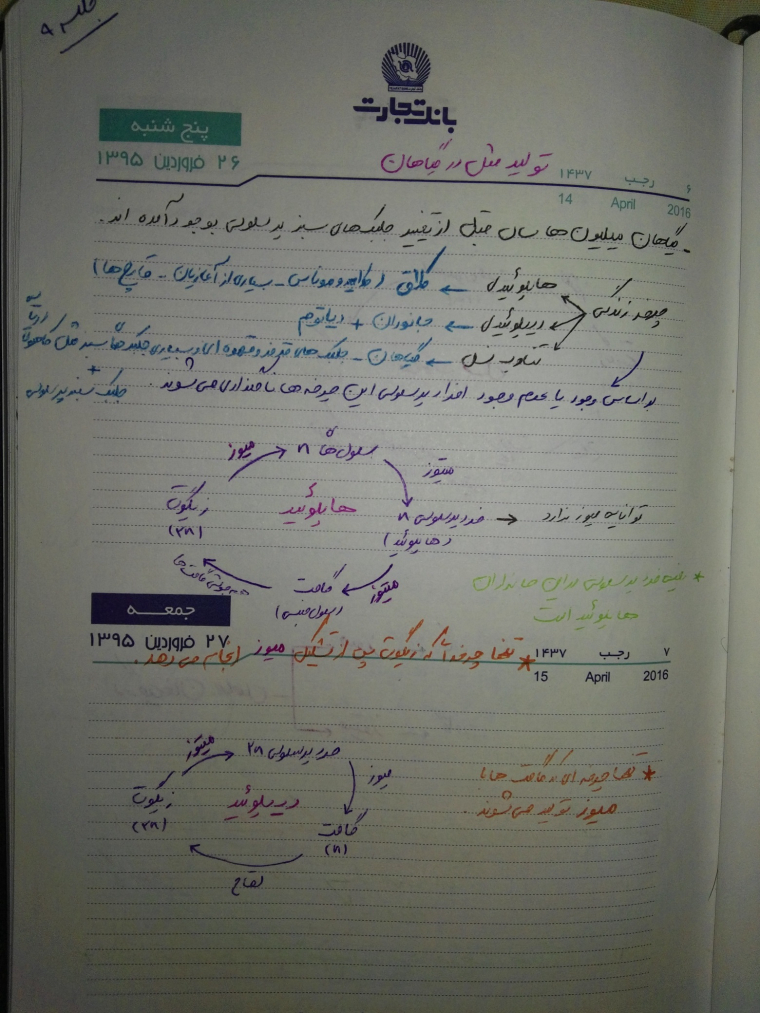 جلسه ۹
بانک تجارت
پنج شنبه
۲۶ فروردین ۱۳۹۵
تولید مثل در گیاهان
۶ رجب ۱۴۳۷
14 April 2016
- گیاهان میلیون ها سال قبل از تغییر جلبک‌های سبز پرسلولی بوجود آمده اند.
چرخه زندگی
هاپلوئیدی ← کلاق (کلامیدوموناس - بسیاری از آغازیان - قارچ ها)
دیپلوئیدی ← جانوران + دیاتوم
تناوب نسل ← گیاهان - جلبک های قرمز و قهوه ای و بسیاری جلبک های سبز مثل کاهوی دریایی
+ جلبک سبز پرسلولی
براساس وجود یا عدم وجود افراد پرسلولی این چرخه ها نامگذاری می شوند.
هاپلوئید
میوز
سلول ها n
میتوز
فرد پرسلولی n
(هاپلوئید)
→ توانایی میوز ندارد
میتوز
گامت
(سلول جنسی)
هم جوشی گامت ها
زیگوت
(2n)
* بقیه فرد پرسلولی برای جانداران
هاپلوئید است
جمعه
۲۷ فروردین ۱۳۹۵
۷ رجب ۱۴۳۷
15 April 2016
* تنها چرخه ای که زیگوت پس از تشکیل میوز انجام می دهد.
دیپلوئید
میتوز
فرد پرسلولی 2n
میوز
گامت
(n)
لقاح
زیگوت
(2n)
* تنها چرخه ای که گامت ها با
میوز تولید می شوند.